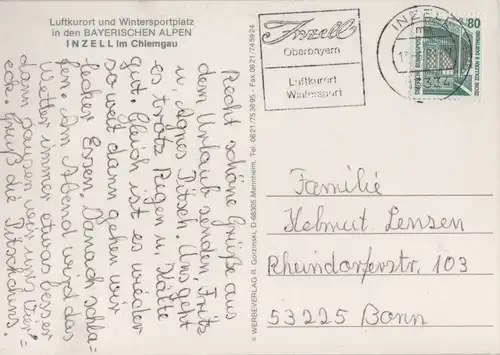 Luftkurort und Wintersportplatz
in den BAYERISCHEN ALPEN
INZELL im Chiemgau
Recht schöne Grüße aus
dem Urlaub senden Fritz
u. Agnes Pitsch. Uns geht
es trotz Regen u. Kälte
gut. Gleich ist es wieder
so weit dann gehen wir
lecker Essen, Danach schla=
fen. Am Abend wird das
Wetter immer etwas besser
dann sausen wir ums Vier=
eck. Gruß die
© WERBEVERLAG R. Gorzinski, D-68305 Mannheim, Tel. 0621/753695 · Fax 0621/745924
Inzell
Oberbayern
Luftkurort
Wintersport
INZELL
80
DEUTSCHE BUNDESPOST
ZECHE ZOLLERN II DORTMUND
Familie
Helmut Lensen
Rheindorferstr. 103
53225 Bonn